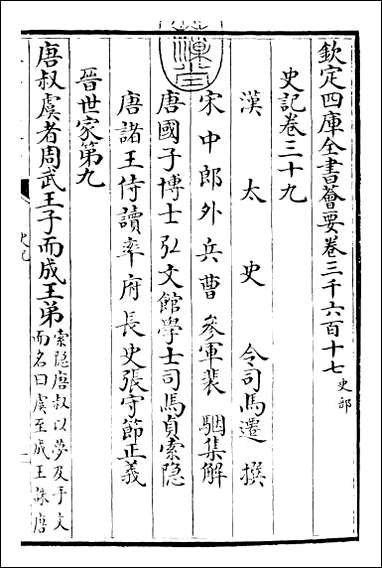 欽定四庫全書薈要卷三千六百十七 史部
史記卷三十九
漢太史令司馬遷撰
宋中郎外兵曹參軍裴駰集解
唐國子博士弘文館學士司馬貞索隱
唐諸王侍讀率府長史張守節正義
晉世家第九
唐叔虞者周武王子而成王弟
索隱唐叔以夢及手文
而名曰虞至成王誅唐